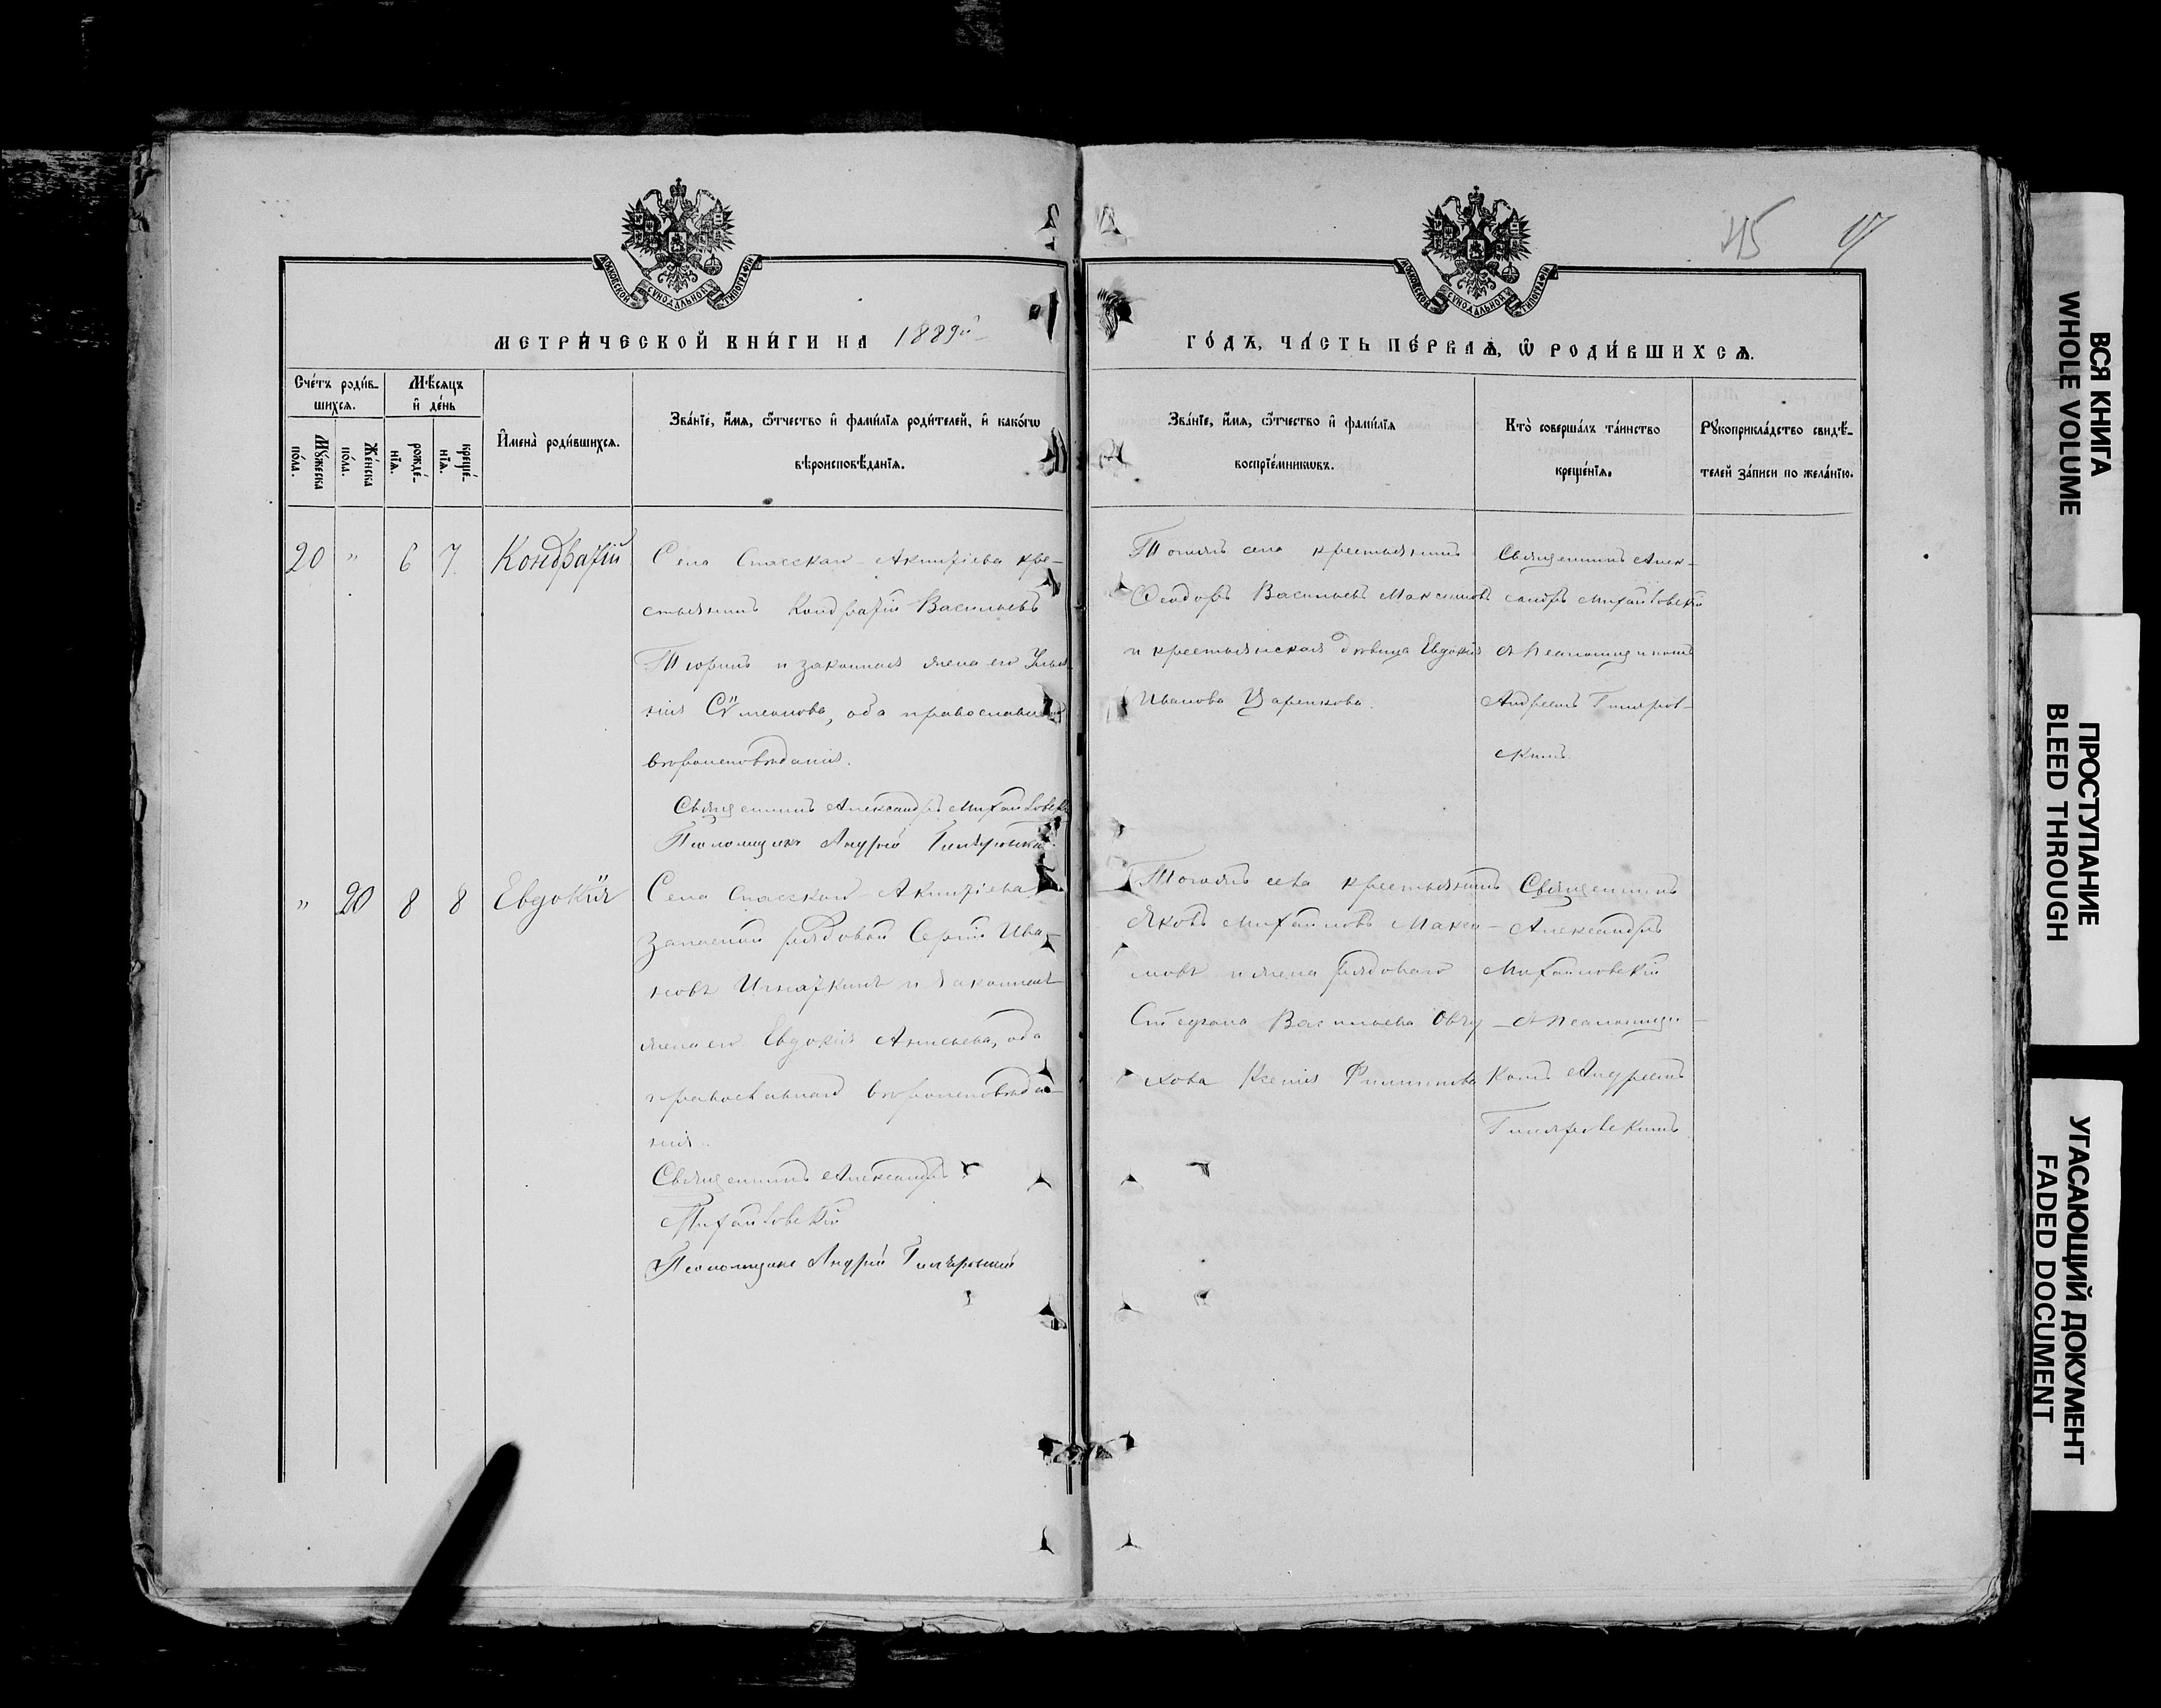 45
МОСКОВСКОЙ СУНОДАЛЬНОЙ ТИПОГРАФІИ
МОСКОВСКОЙ СУНОДАЛЬНОЙ ТИПОГРАФІИ
МЕТРИ́ЧЕСКОЙ КНИ́ГИ НА 1889й
ГО́ДЪ, ЧА́СТЬ ПЕ́РВАѦ, Ѡ РОДИ́ВШИХСѦ.
Сче́тъ роди́в-
шихсѧ.
Мѣ́сѧцъ
и҆ де́нь
Мꙋ́жеска
по́ла.
Же́нска
по́ла.
рожде́-
нїѧ.
креще́-
нїѧ.
И҆мена̀ роди́вшихсѧ.
Зва́нїе, и҆́мѧ, ѻ҆́тчество и҆ фами́лїѧ роди́телей, и҆ како́гѡ
вѣроисповѣ́данїѧ.
Зва́нїе, и҆́мѧ, ѻ҆́тчество и҆ фами́лїѧ
воспрїе́мникѡвъ.
Кто̀ соверша́лъ та́инство
креще́нїѧ.
Рꙋкоприкла́дство свидѣ́-
телей за́писи по жела́нїю.
20 " 6 7 Кондратій
Села Спасскаго
кре-
стьянинъ Кондратій Васильевъ
и законная жена его
оба православнаго
вѣроисповѣданія.
Священникъ Александръ Михайловскій
Псаломщикъ Андрей Гиляровскій
Тогожъ села крестьянинъ
Ѳеодоръ Васильевъ Максимовъ
и крестьянская дѣвица Евдокія
Иванова Царенкова.
Священникъ Алек-
сандръ Михайловскій
съ Псаломщикомъ
Андреемъ Гиляров-
скимъ
" 20 8 8 Евдокія
Села Спасскаго
Запасный рядовой Сергій Ива-
новъ Игнаткинъ и законная
жена его Евдокія оба
православнаго вѣроисповѣда-
нія.
Священникъ Александръ
Михайловскій
Псаломщикъ Андрей Гиляровскій
Тогожъ села крестьянинъ
Яковъ Михайловъ Макси-
мовъ и жена рядоваго
Стефана Васильева
Ксенія Филиппова
Священникъ
Александръ
Михайловскій
съ Псаломщи-
комъ Андреемъ
Гиляровскимъ
ВСЯ КНИГА
WHOLE VOLUME
ПРОСТУПАНИЕ
BLEED THROUGH
УГАСАЮЩИЙ ДОКУМЕНТ
FADED DOCUMENT